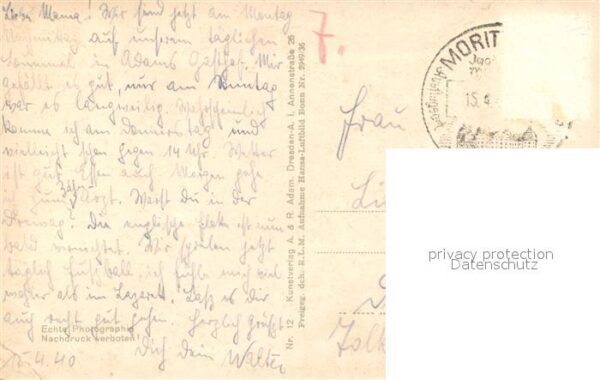 Liebe Mama! Wir sind jetzt am Montag
auf unserem täglichen
in Adams Gasthof. Mir
gefällt es gut, nur am Sonntag
war es langweilig. Wahrscheinlich
komme ich am Donnerstag und
vielleicht schon gegen 14 Uhr. Wetter
ist gut. Essen auch. Morgen gehe
ich zum Zahnarzt. Warst du in der
Die englische Flotte ist nun
bald vernichtet. Wir spielen jetzt
täglich Fußball, ich fühle mich viel
wohler als im Lazarett. Laß es dir
auch recht gut gehen. Herzlich grüßt
Dich dein Walter
15.4.40
Echte Photographie
Nachdruck verboten!
Nr. 12 Kunstverlag A. & R. Adam, Dresden-A. 1, Annenstraße 26
Freigeg. dch. R.L.M. Aufnahme Hansa-Luftbild Bonn Nr. 2949/36
7.
MORIT
Jag
15.4.
Frau
privacy protection
Datenschutz